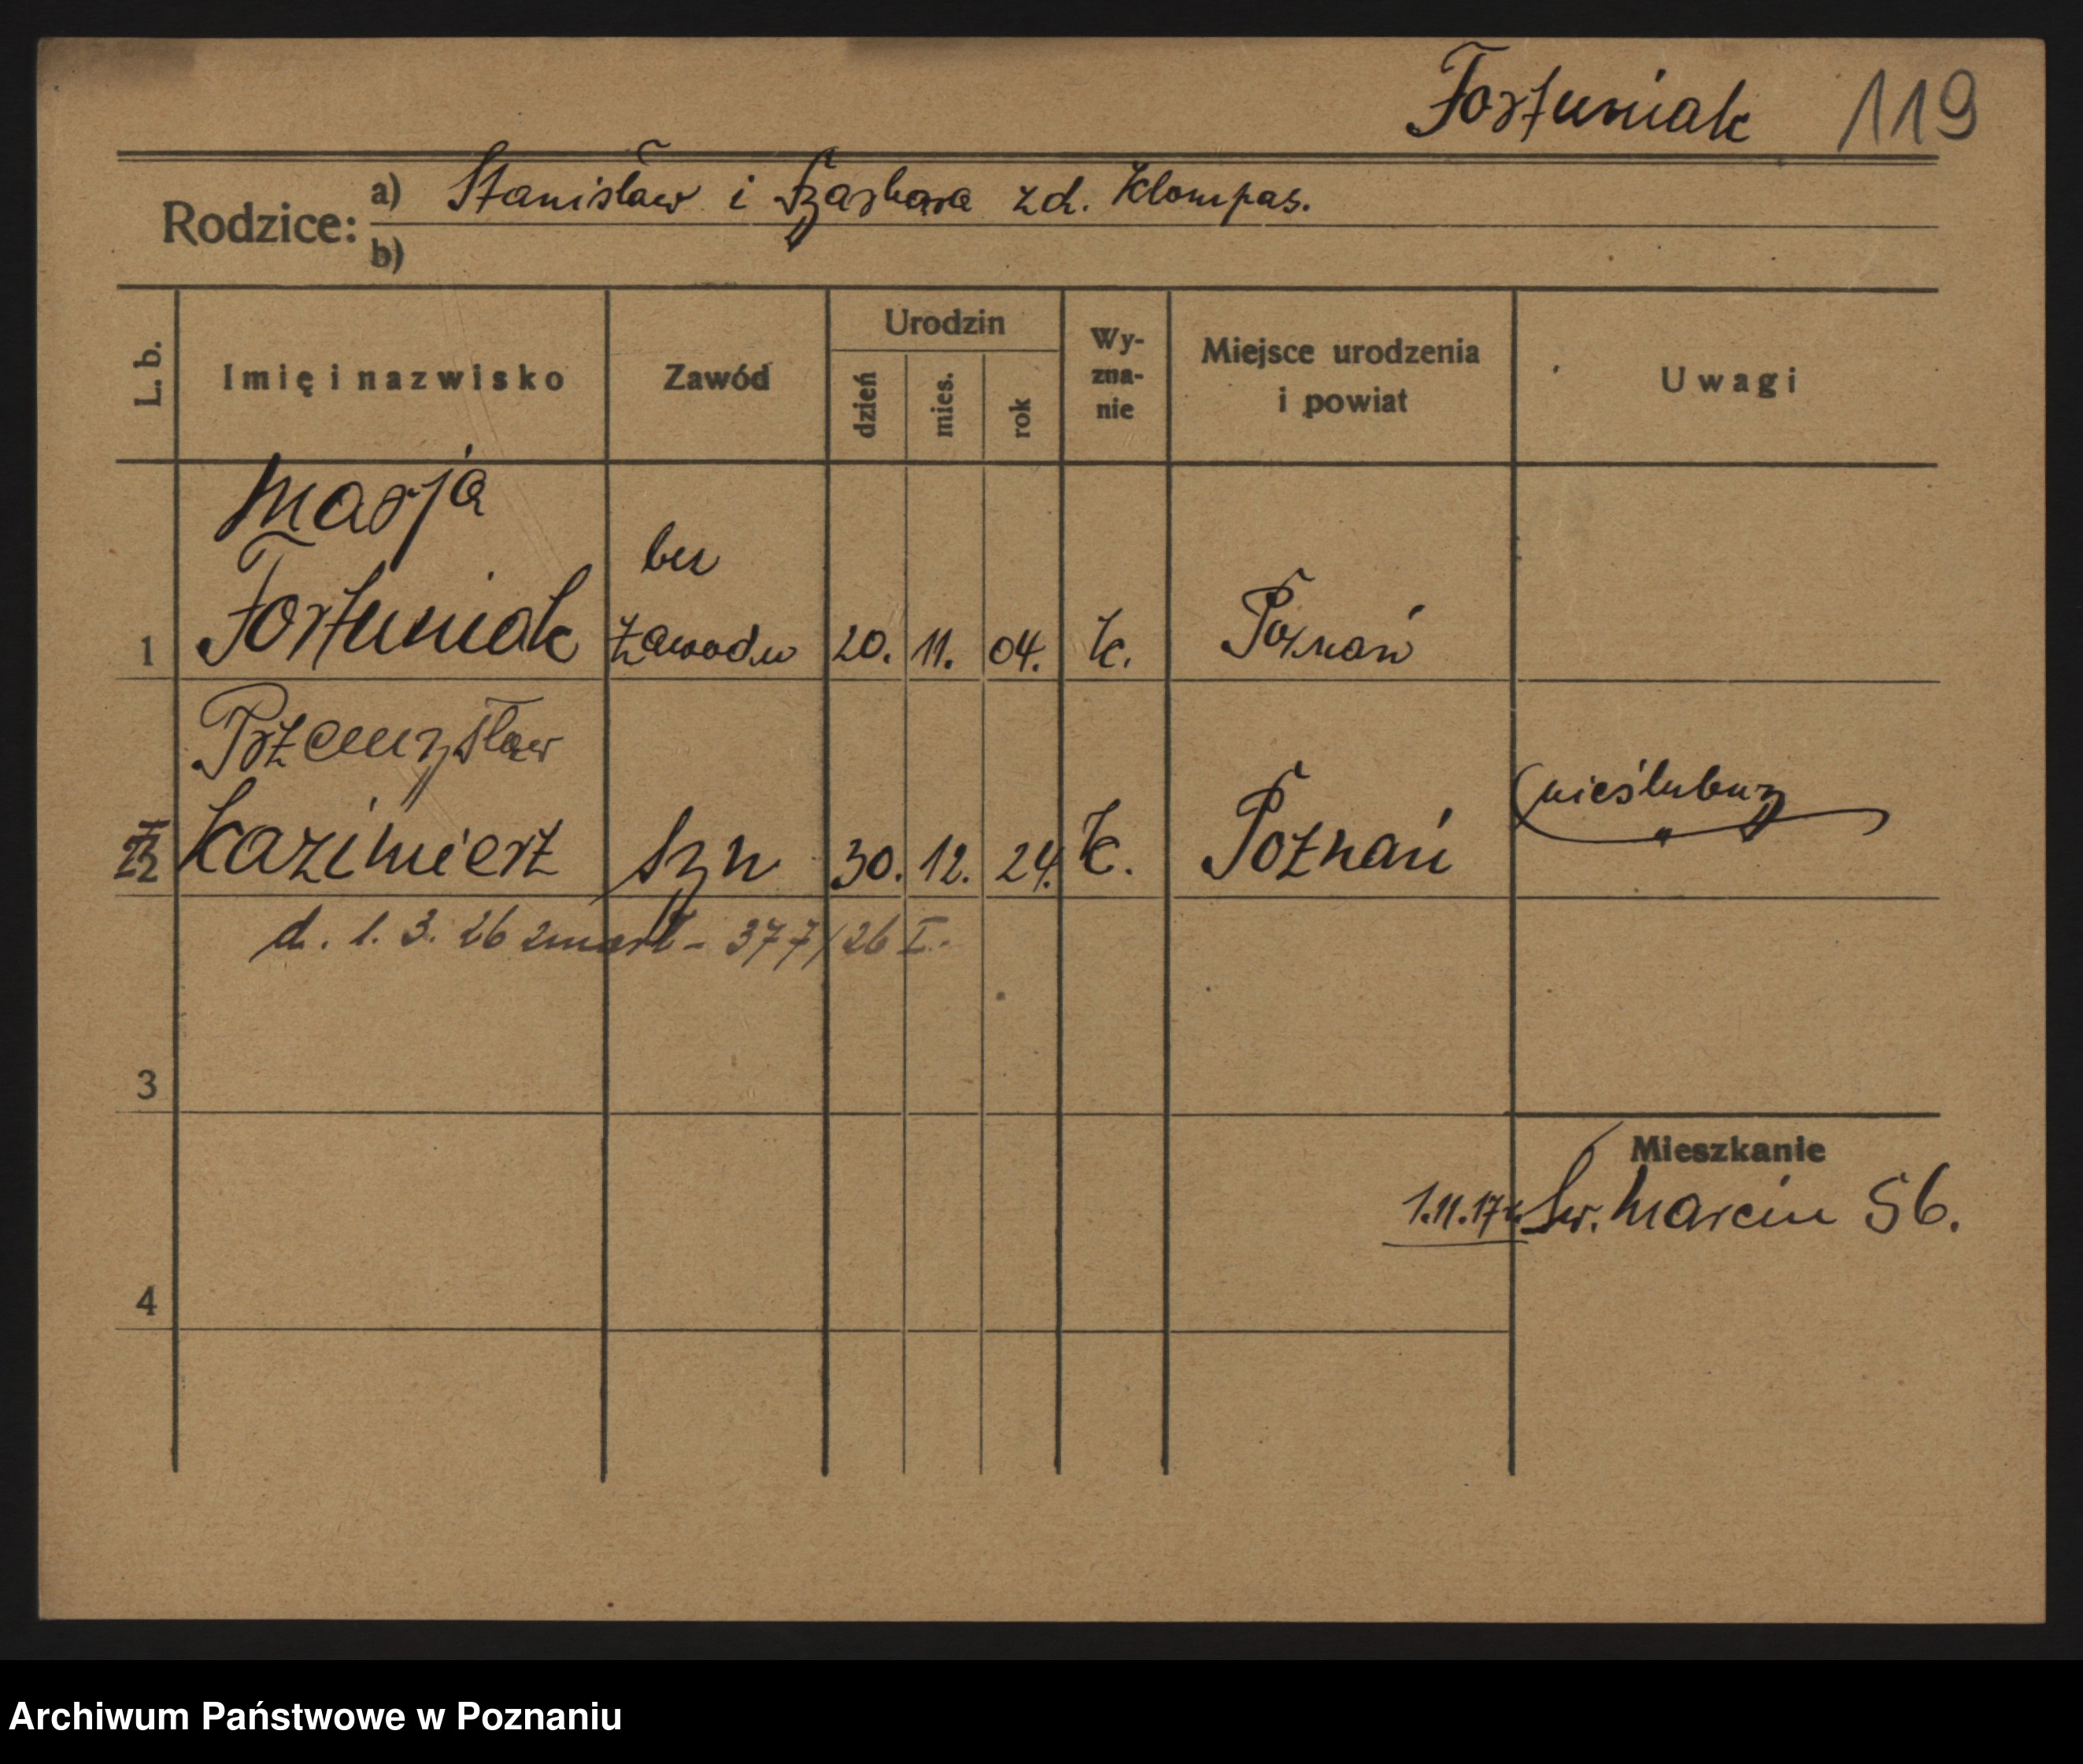 Fortuniak 119
Rodzice: a) Stanisław i Barbara zd. Klompas.
b)
L. b. Imię i nazwisko Zawód Urodzin dzień mies. rok Wy-zna-nie Miejsce urodzenia i powiat Uwagi
Marja
Fortuniak bez
1 zawodu 20. 11. 04. k. Poznań
Przemysław
Kazimierz syn 30. 12. 24. k. Poznań nieślubny
d. 1. 3. 26 zmarł - 377/26 I.
3
Mieszkanie
1.11.17 r. Św. Marcin 56.
4
Archiwum Państwowe w Poznaniu